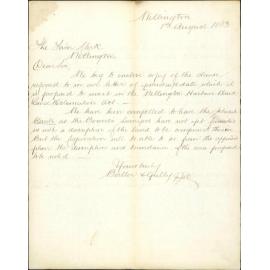 Wellington
1st August 1883
The Town Clerk
Wellington
Dear Sir,
We beg to enclose copy of the clause
referred to in our letter of yesterday's date which it
is proposed to insert in the Wellington Harbour Board
Land Reclamation Act.
We have been compelled to have the
as the Crown's Surveyor have not yet
us with a description of the land to be
But the will be able to see from the
plan the description and boundaries of the area proposed
to be
Yours truly
Buller & Gully